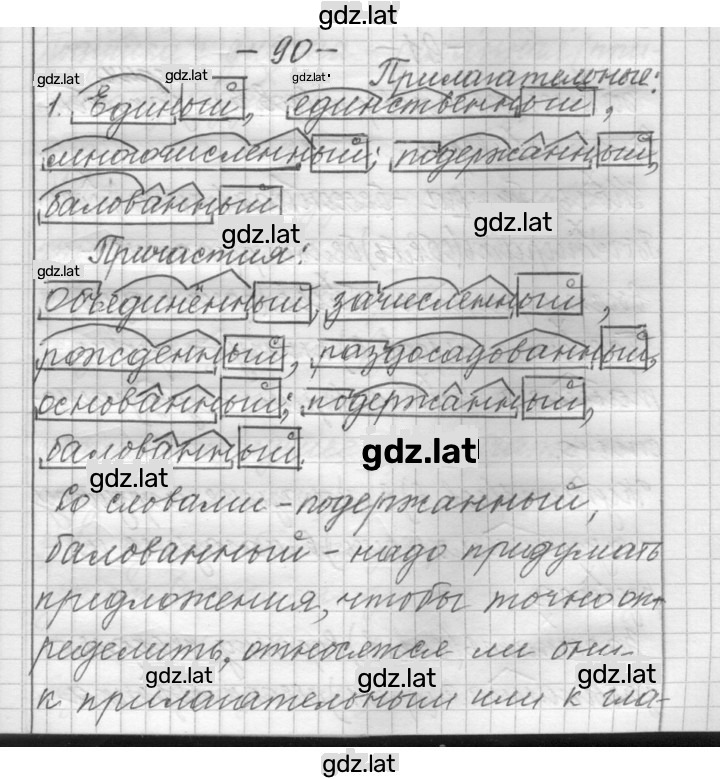 gdz.lat
- 90 -
gdz.lat gdz.lat gdz.lat Прилагательные:
1. Единый, единственный,
многочисленный; подержанный,
балованный
gdz.lat gdz.lat
Причастия:
gdz.lat
Объединённый, зачисленный,
рожденный, раздосадованный,
основанный; подержанный,
балованный.
gdz.lat
gdz.lat
Со словами - подержанный,
балованный - надо придумать
предложения, чтобы точно оп-
ределить, относятся ли они
gdz.lat gdz.lat gdz.lat
к прилагательным или к гла-
gdz.lat